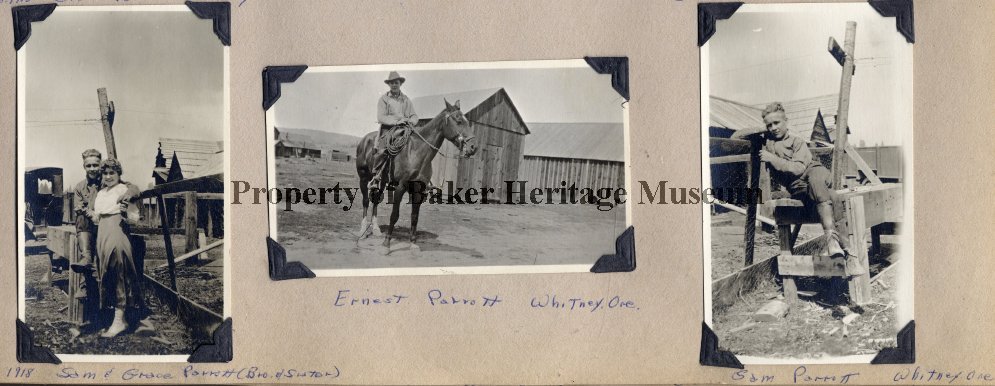 Property of Baker Heritage Museum
Ernest Parrott Whitney, Ore.
1918 Sam & Grace Parrott (Bro. & Sister)
Sam Parrott Whitney, Ore